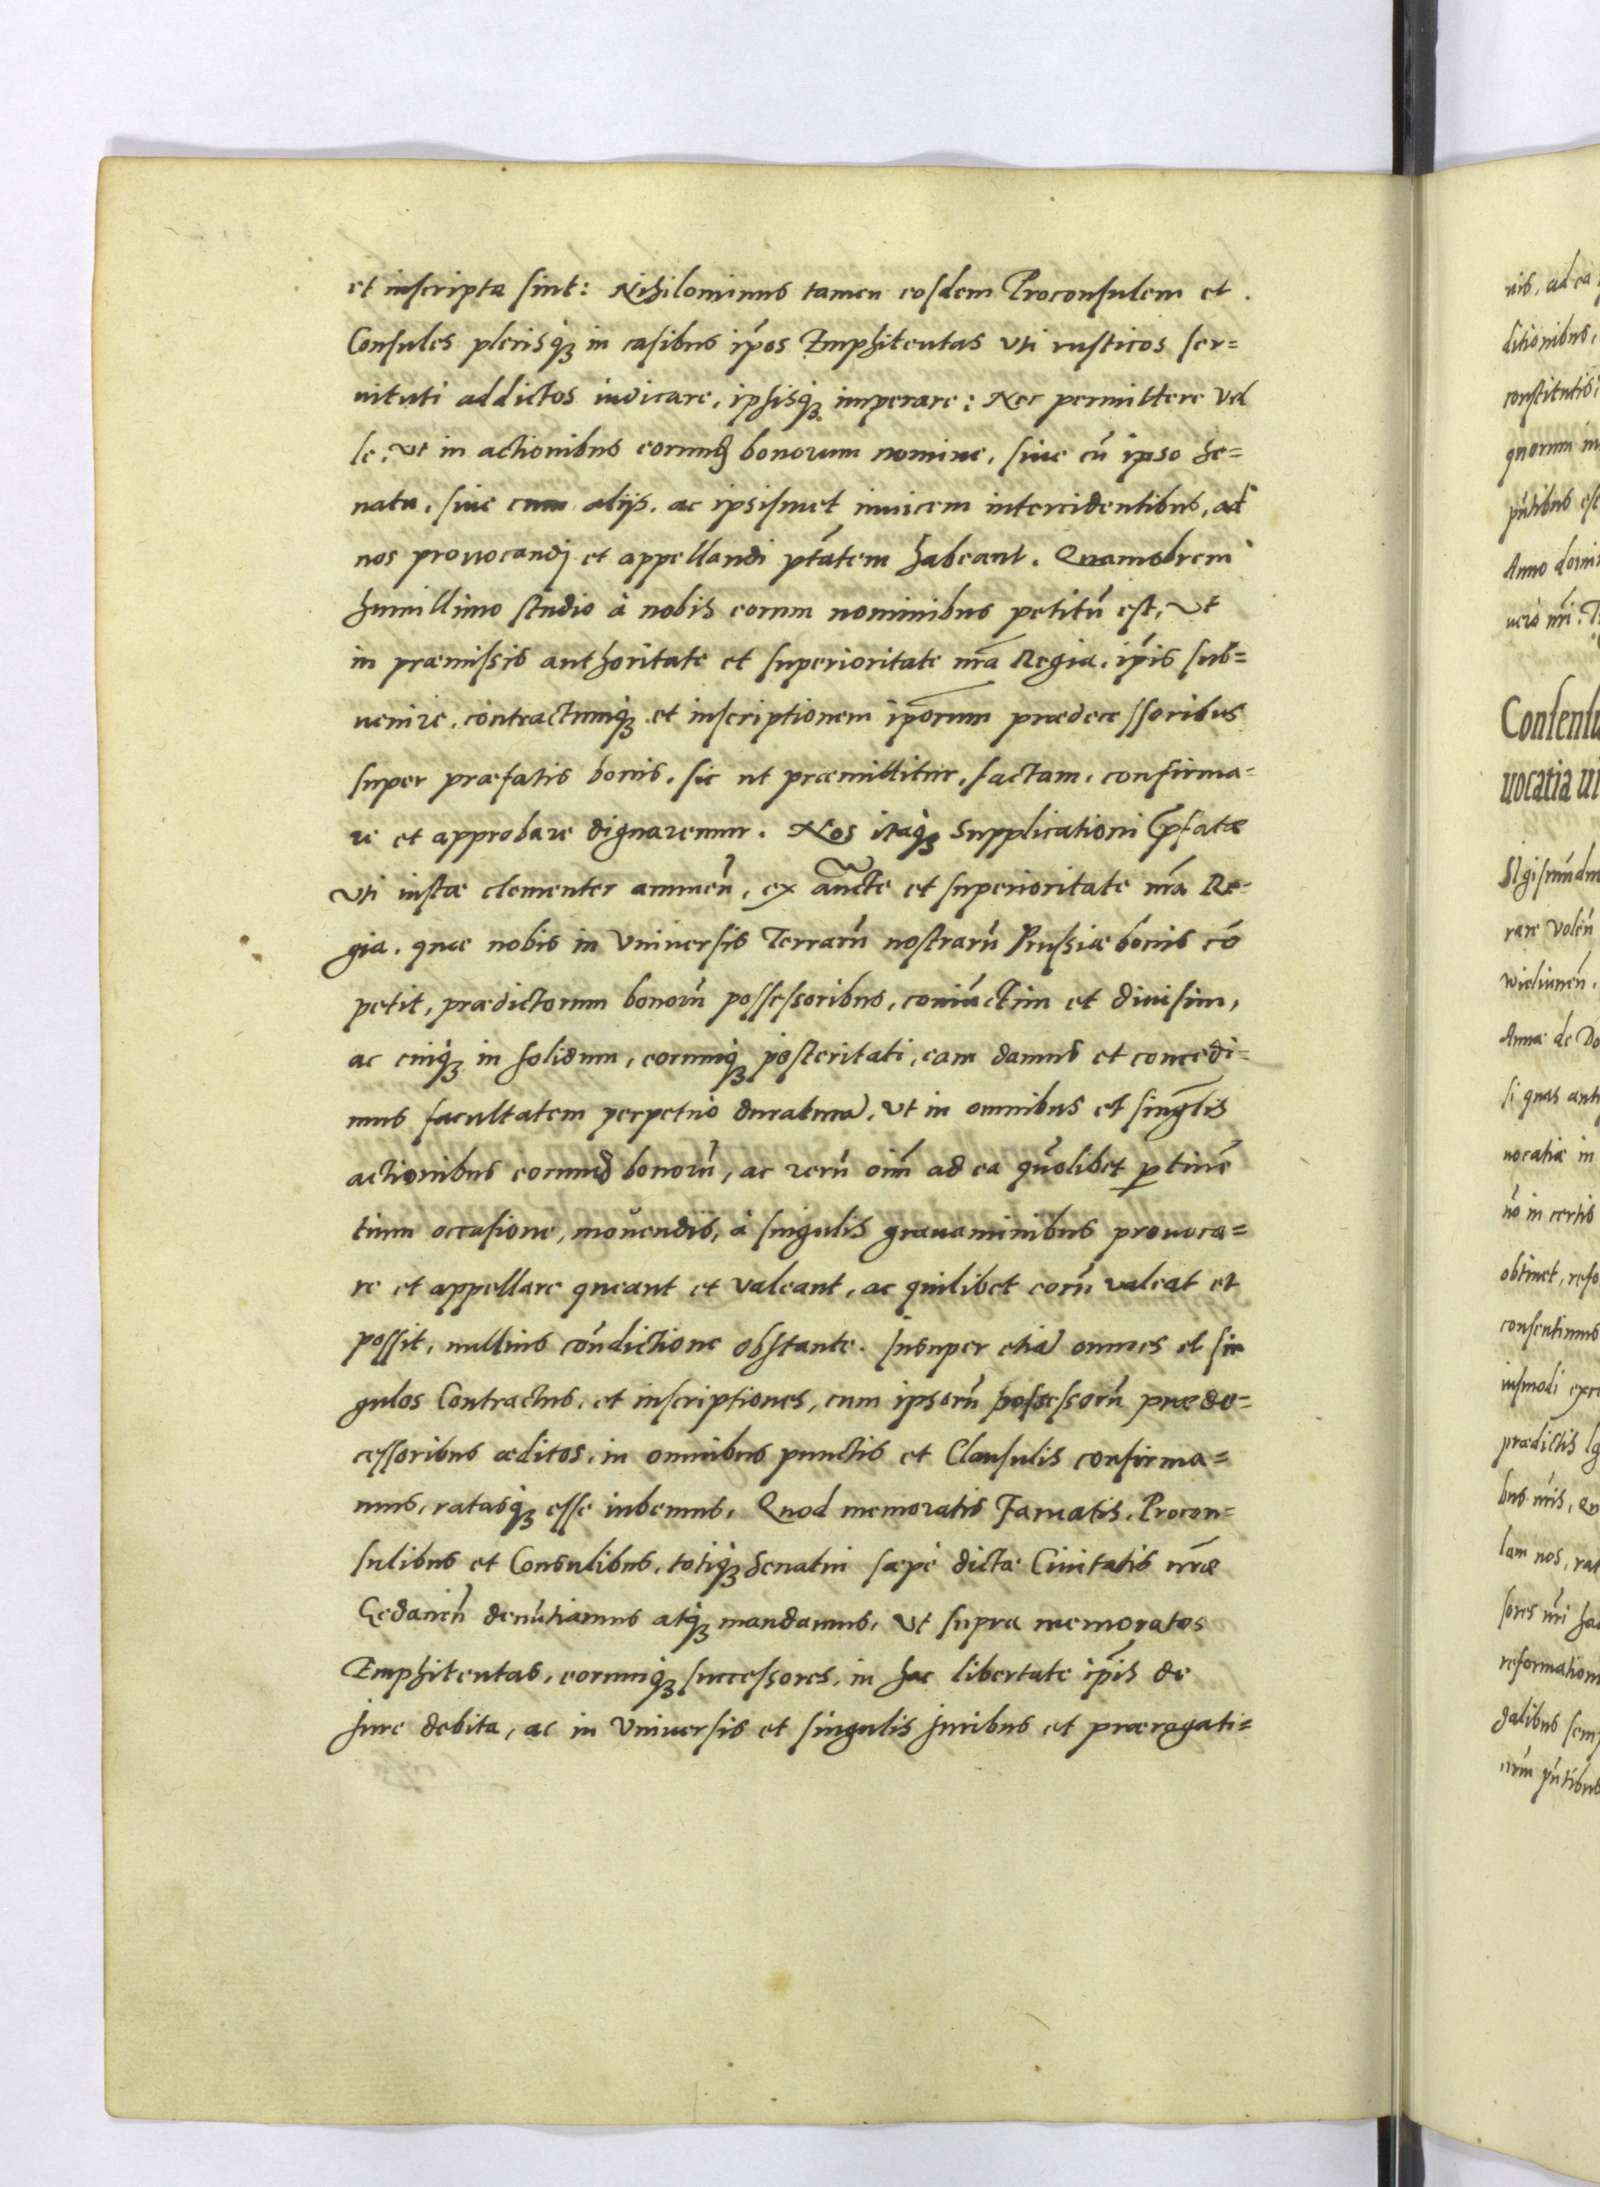 et inscripta sint: Nihilominus tamen eosdem Proconsulem et
Consules plerisqꝫ in casibus ip̄os Emphiteutas vti rusticos ser=
uituti addictos iudicare, ipsisqꝫ imperare: Nec permittere vel
le, vt in actionibus eorund̄ bonorum nomine, siue cū ipso Se=
natu, siue cum alijs, ac ipsismet inuicem intercidentibus, ad
nos prouocandj et appellandi p̄tatem habeant. Quamobrem
humillimo studio à nobis eorum nominibus petitū est, vt
in præmissis authoritate et superioritate nr̄a Regia, ip̄is sub=
uenire, contractumqꝫ et inscriptionem ip̄orum prædecessoribus
super præfatis bonis, sic ut præmittitur, factam, confirma=
re et approbare dignaremur. Nos itaqꝫ supplicationi p̄fatæ
vti iustæ clementer annuen̄, ex aūcte et superioritate nr̄a Re=
gia, quæ nobis in vniuersis Terrarū nostrarū Prussiæ bonis cō
petit, prædictorum bonorū possessoribus, coniunctim et diuisim,
ac cuiqꝫ in solidum, eorumqꝫ posteritati, eam damus et concedi=
mus facultatem perpetuò duraturā, vt in omnibus et singl̄is
actionibus eorund̄ bonorū, ac rerū oīm ad ea quōlibet ꝑtinē
tium occasione, mouendis, à singulis grauaminibus prouoca=
re et appellare queant et valeant, ac quilibet eorū valeat et
possit, nullius cōndictione obstante. Insuper etiā omnes et sin
gulos Contractus, et inscriptiones, cum ipsorū possessorū præde=
cessoribus æditos, in omnibus punctis et Clausulis confirma=
mus, ratasqꝫ esse iubemus, Quod memoratis Famatis, Procon=
sulibus et Consulibus, totiqꝫ Senatui sæpè dictæ Ciuitatis nr̄æ
Gedanen̄ denūtiamus atqꝫ mandamus, vt supra memoratos
Emphiteutas, eorumqꝫ successores, in hac libertate ip̄is de
Jure debita, ac in vniuersis et singulis Juribus et prærogati=
uis, ad ea
ditionibus,
constitutis
quorum
Anno domi
uero nr̄i
Consensu
uocatia ui
Sigismundu
rare volen̄
wieliunen̄,
Annæ de Do
si quas anti
uocatiæ in
in certis
obtinet, refo
consentimus
iusmodi exe
prædictis
bus nr̄is, Qu
lam nos, rat
sores nr̄i ha
reformation
dalibus sem